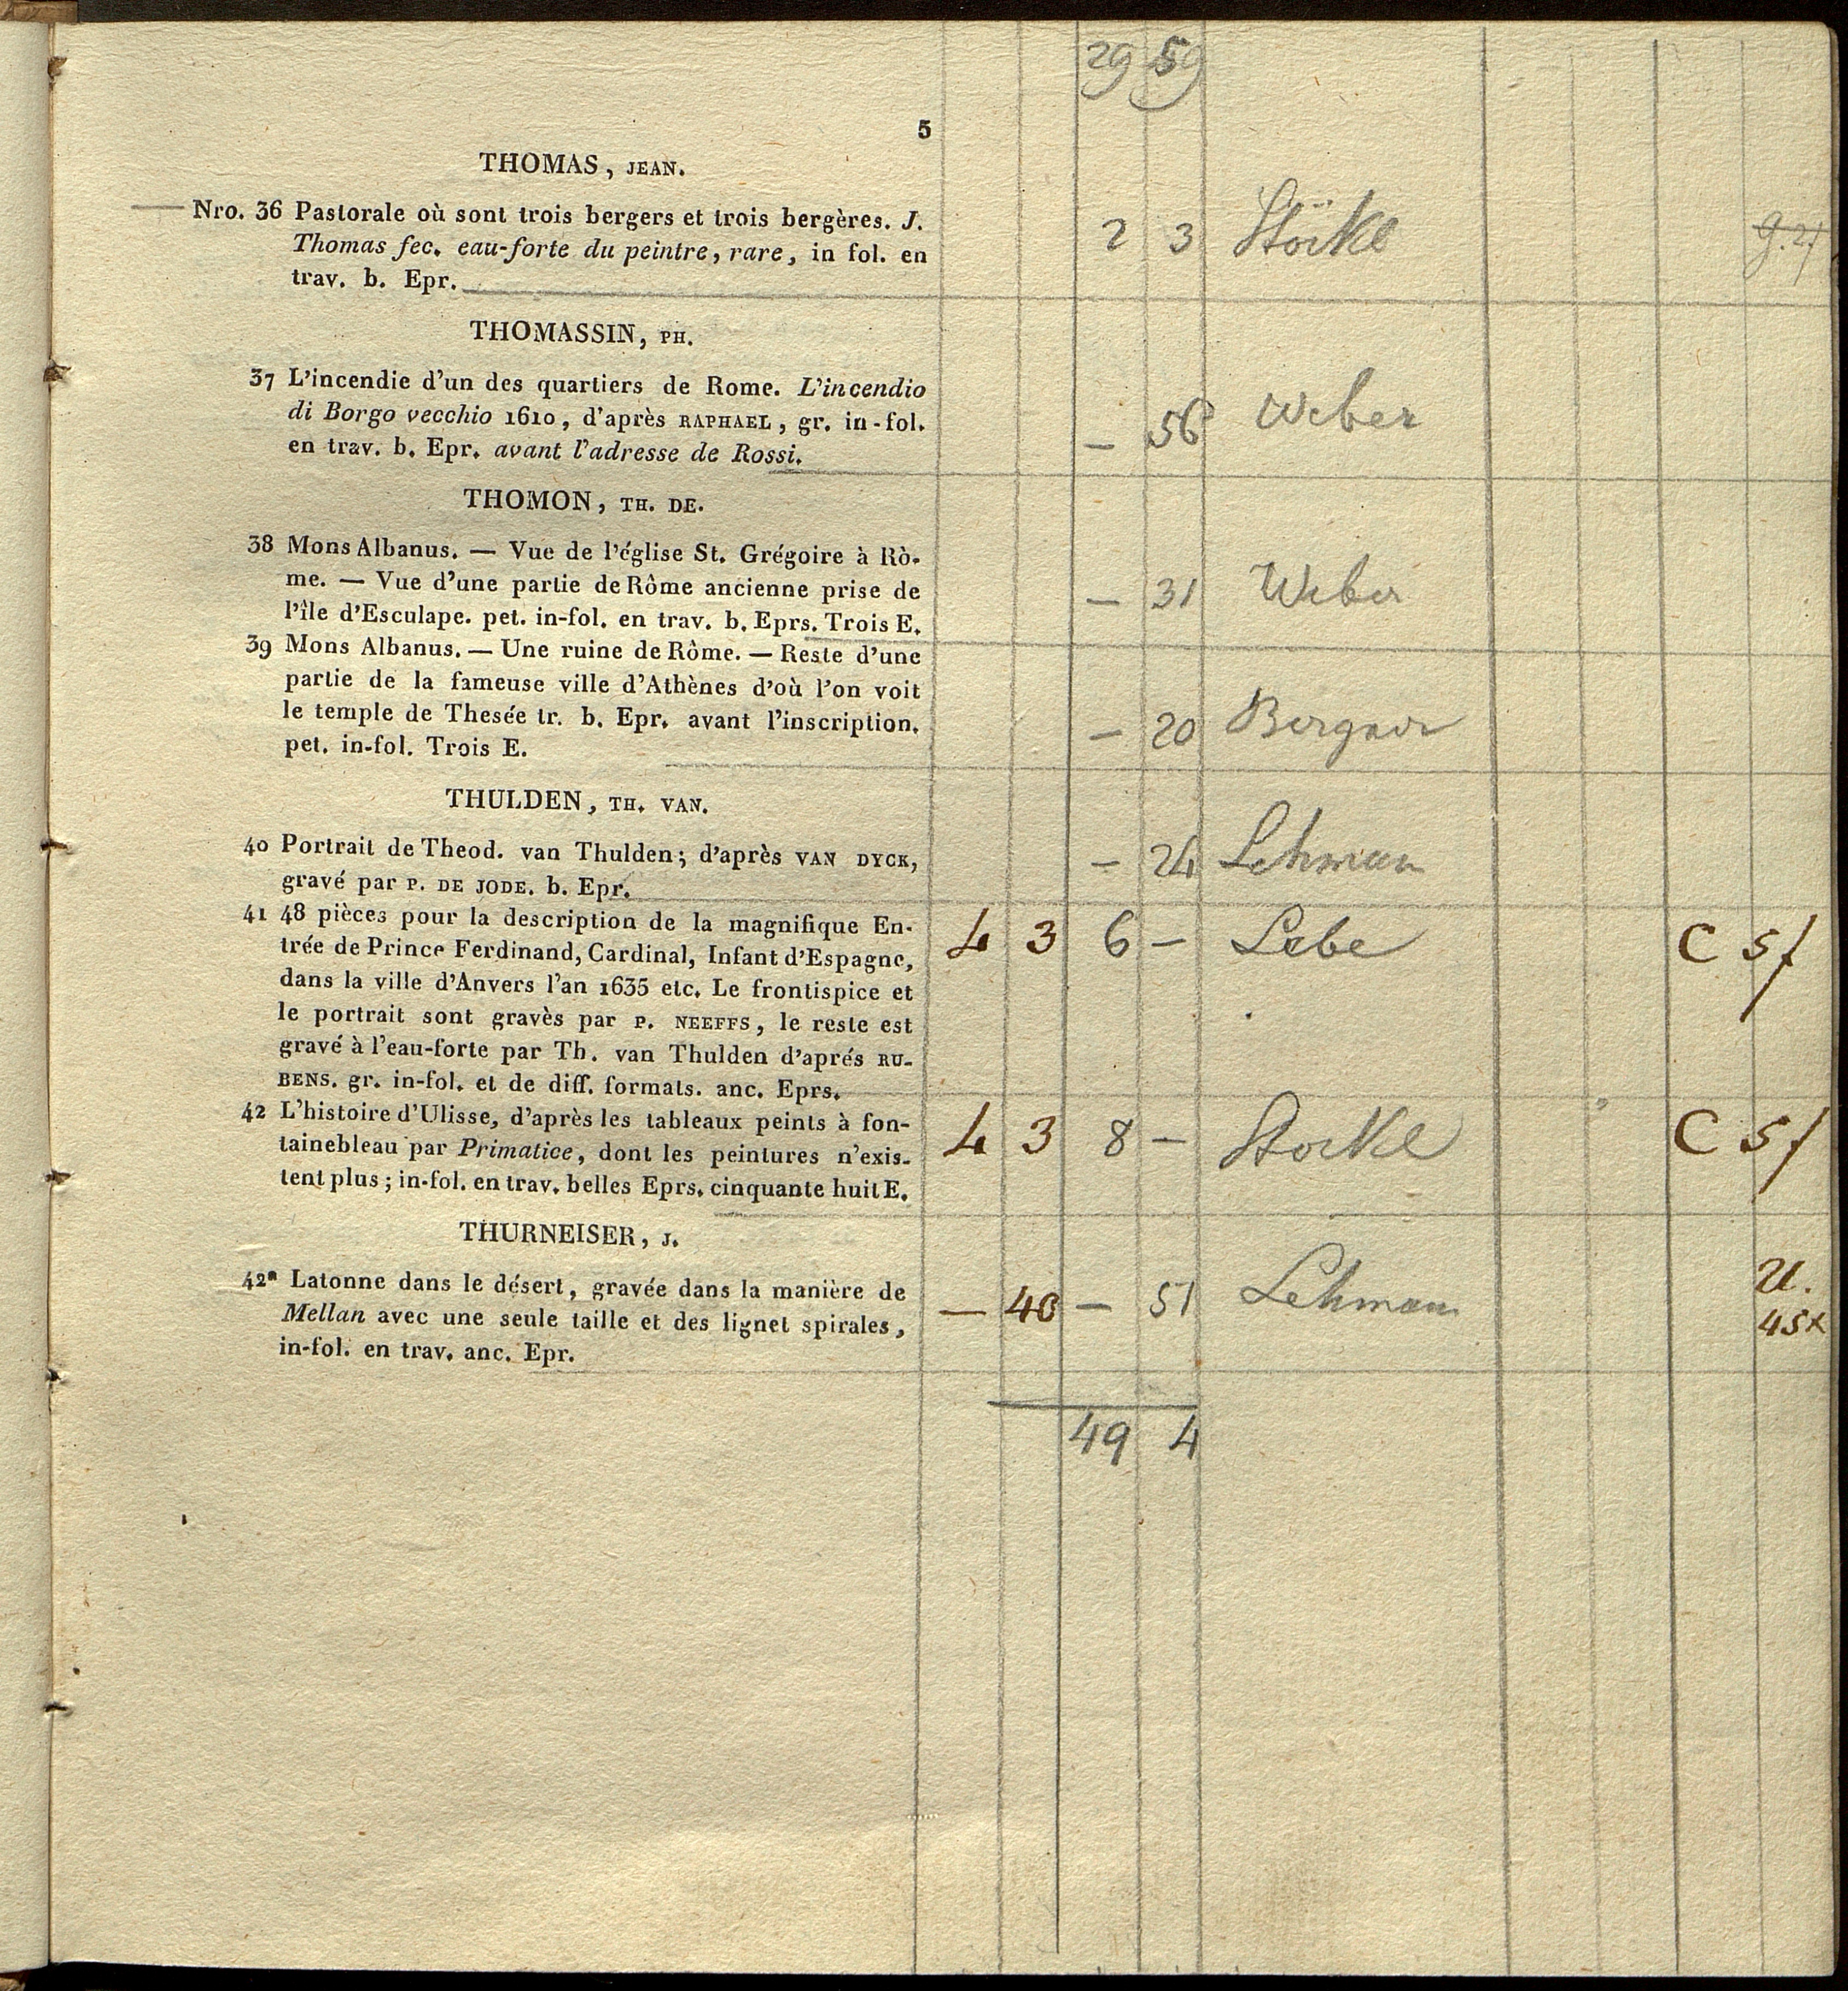 29 59
5
THOMAS, JEAN.
Nro. 36 Pastorale où sont trois bergers et trois bergères. J.
Thomas fec. eau-forte du peintre, rare, in fol. en
trav. b. Epr.
2 3 Stöckl
THOMASSIN, PH.
37 L'incendie d'un des quartiers de Rome. L'incendio
di Borgo vecchio 1610, d'après RAPHAEL, gr. in-fol.
en trav. b. Epr. avant l'adresse de Rossi.
— 56 Weber
THOMON, TH. DE.
38 Mons Albanus. — Vue de l'église St. Grégoire à Rò-
me. — Vue d'une partie de Rôme ancienne prise de
l'île d'Esculape. pet. in-fol. en trav. b. Eprs. Trois E.
— 31 Weber
39 Mons Albanus. — Une ruine de Rôme. — Reste d'une
partie de la fameuse ville d'Athènes d'où l'on voit
le temple de Thesée tr. b. Epr. avant l'inscription.
pet. in-fol. Trois E.
— 20
THULDEN, TH. VAN.
40 Portrait de Theod. van Thulden; d'après VAN DYCK,
gravé par P. DE JODE. b. Epr.
— 24 Lehman
41 48 pièces pour la description de la magnifique En-
trée de Prince Ferdinand, Cardinal, Infant d'Espagne,
dans la ville d'Anvers l'an 1635 etc. Le frontispice et
le portrait sont gravès par P. NEEFFS, le reste est
gravé à l'eau-forte par Th. van Thulden d'aprés RU-
BENS. gr. in-fol. et de diff. formats. anc. Eprs.
4 3 6 — Lebe C 5f
42 L'histoire d'Ulisse, d'après les tableaux peints à fon-
tainebleau par Primatice, dont les peintures n'exis-
tent plus; in-fol. en trav. belles Eprs. cinquante huit E.
4 3 8 — Stockl C 5f
THURNEISER, J.
42a Latonne dans le désert, gravée dans la manière de
Mellan avec une seule taille et des lignet spirales,
in-fol. en trav. anc. Epr.
— 40 — 51 Lehman U.
45x
49 4